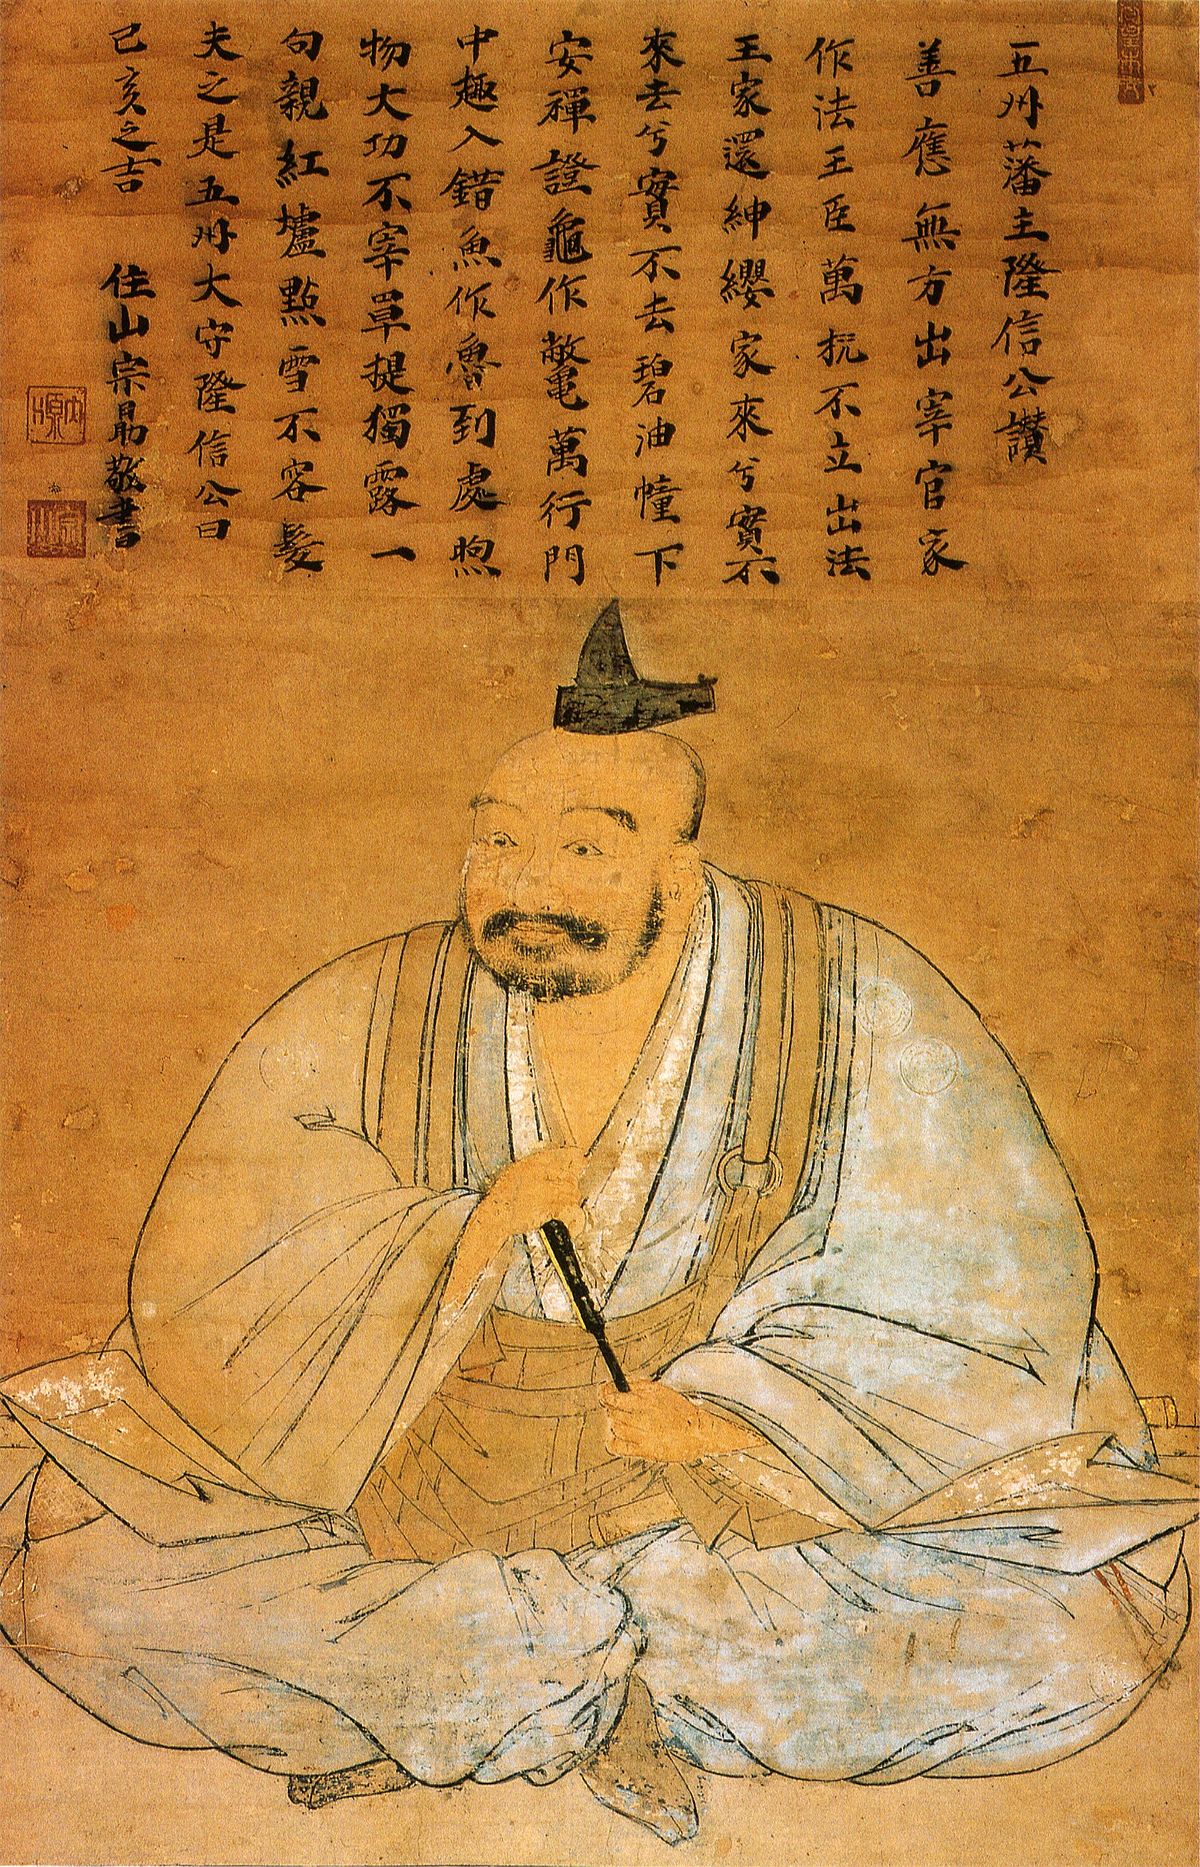 五州藩主隆信公讚
善應無方出宰官家
作法王臣萬机不立出法
王家還紳纓家來兮實不
來去兮實不去碧油幢下
安禪證龜作鼈萬行門
中趣入錯魚作魯到處煦
物大功不宰單提獨露一
句親紅壚點雪不容髮
夫之是五州大守隆信公曰
己亥之吉 住山宗勗敬書